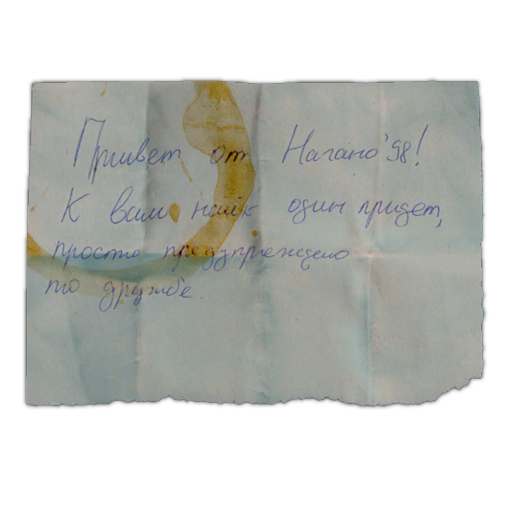 Привет от Нагано'98!
К вам наик один придет,
просто предупреждаю
по дружбе.